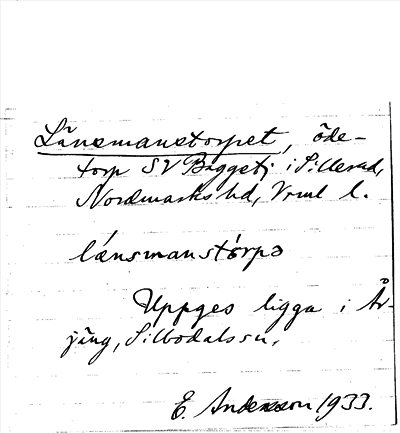 Länsmanstorpet, öde-
torp SV Byggetj i Sillerud,
Nordmarks hd, Vrml l.
lǽnsmanstórpə
Uppges ligga i År-
jäng, Silbodals sn.
E. Andersson 1933.